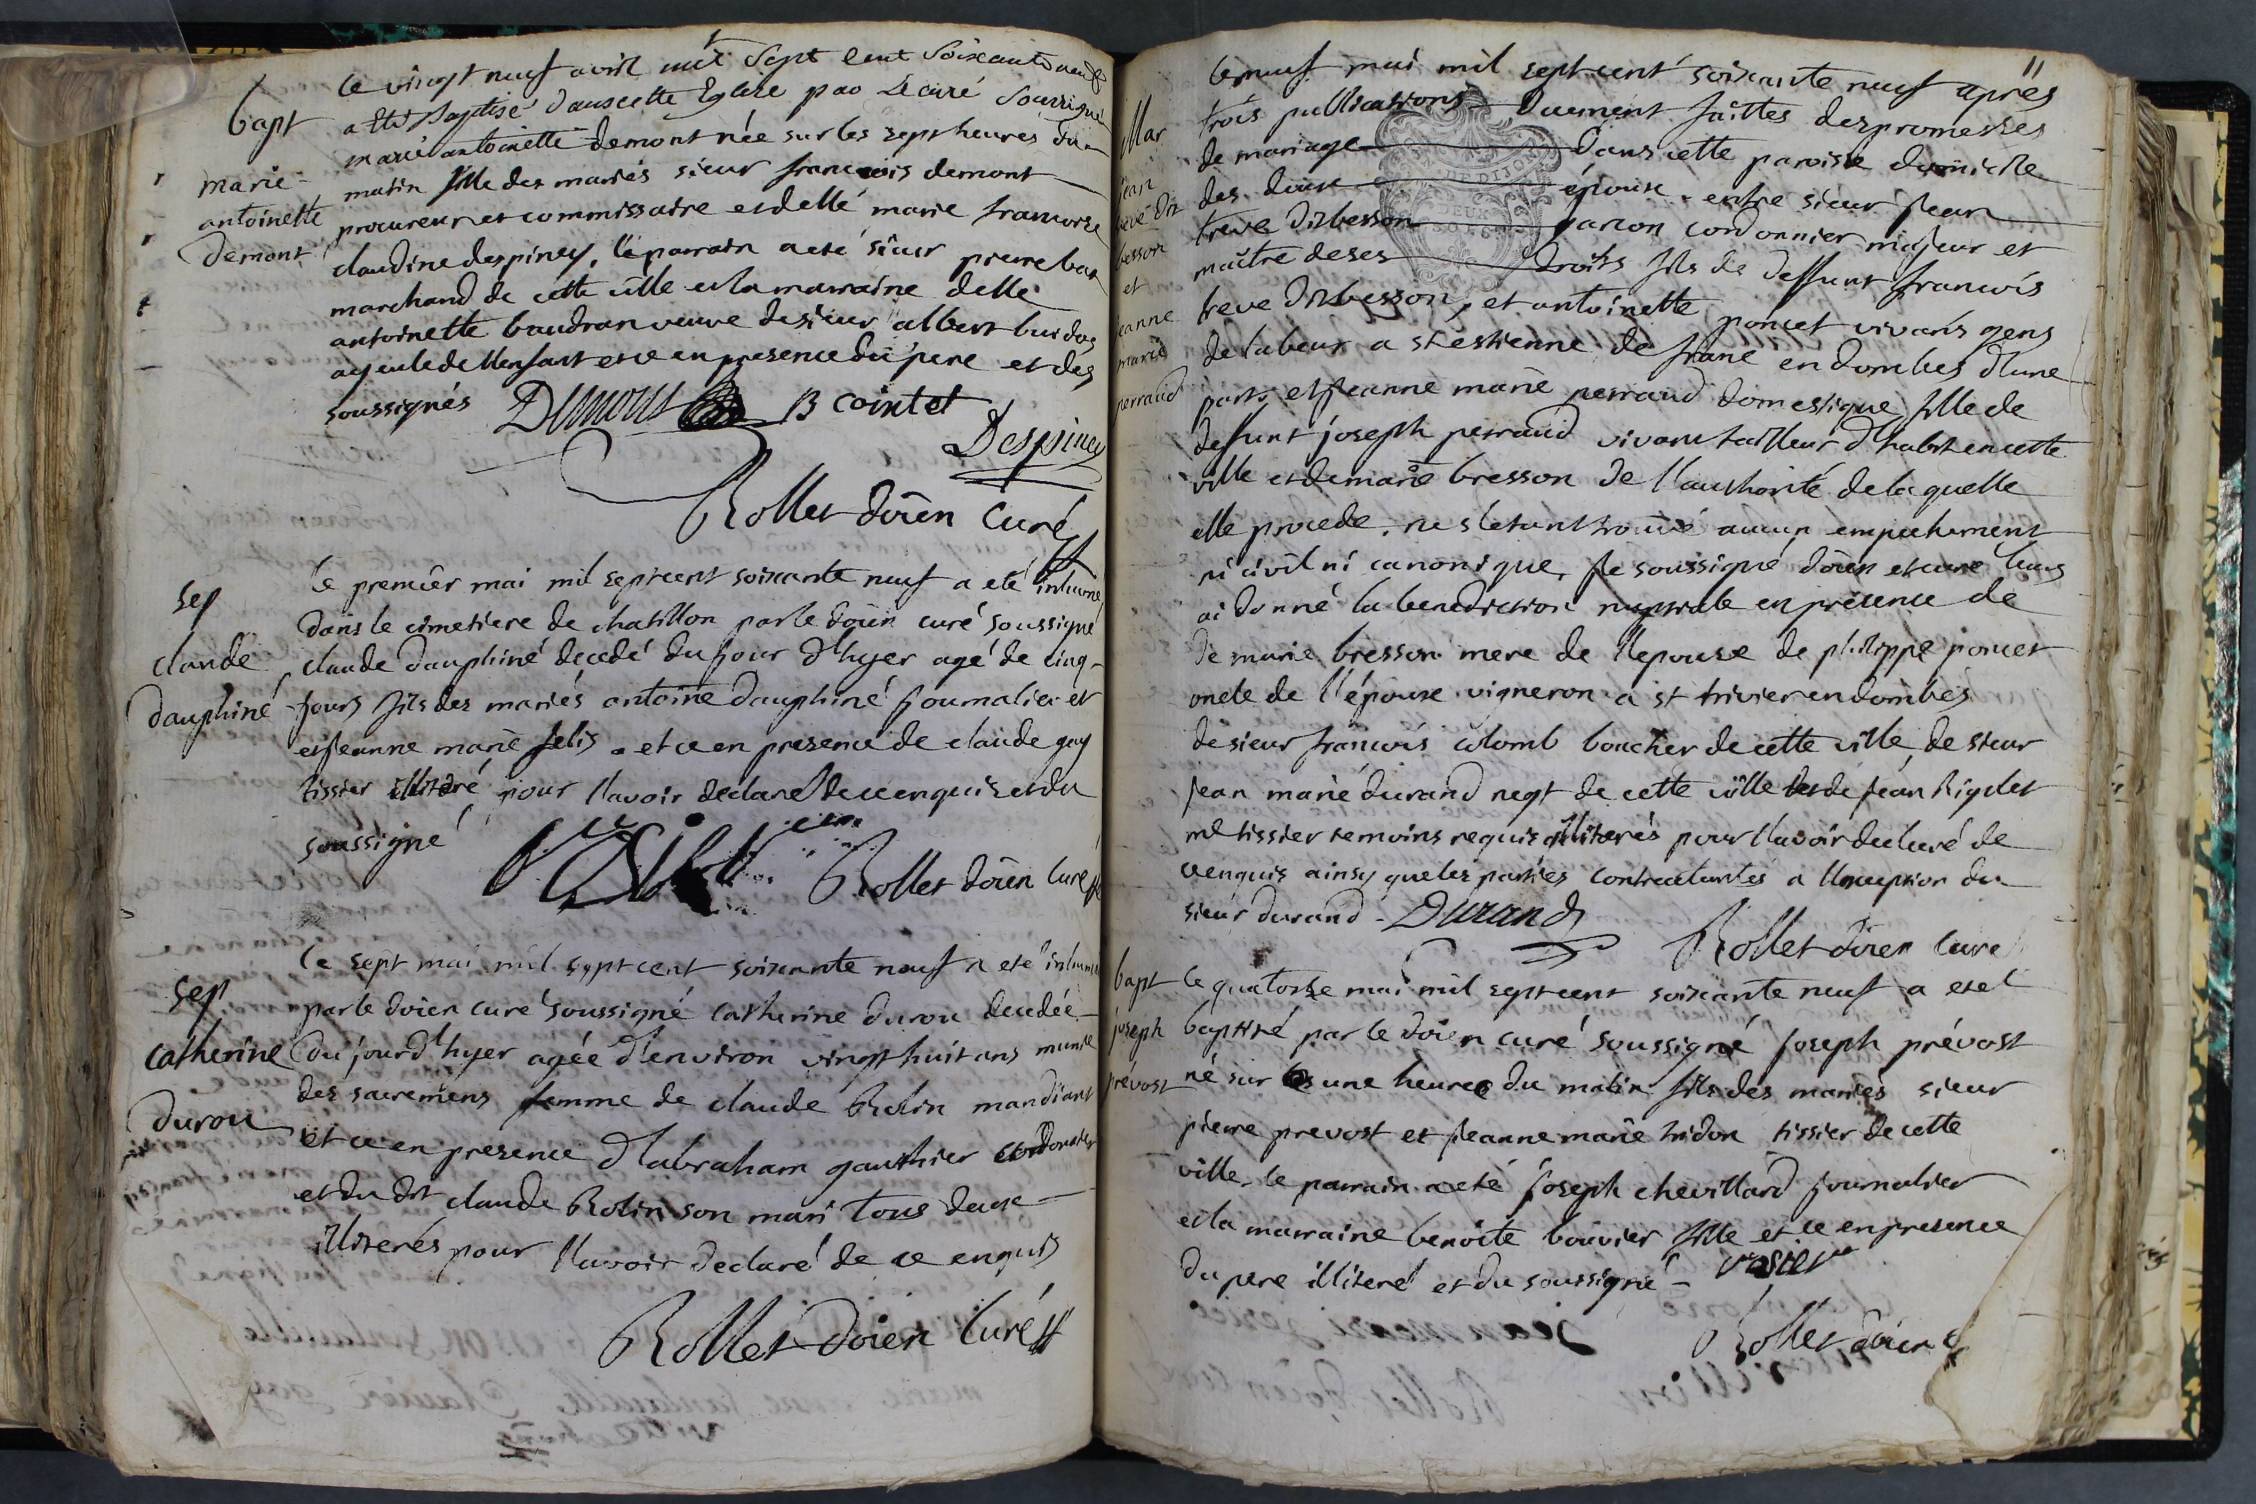 bapt
marie
antoinette
demont
le vingt neuf avril mil sept cent soixante neuf
a eté baptisé dans cette Eglise par le curé soussigné
marie antoinette demont née sur les sept heures du
matin fille des mariés sieur francois demont
procureur et commissaire et delle marie francoise
claudine despiney, le parrain a eté sieur pierre
marchand de cette ville et la marraine delle
antoinette baudran veuve de sieur albert
ayeule de l'enfant et ce en presence du pere et des
soussignés Demont B cointet
Despiney
Rollet doïen curé
sep
claude
dauphiné
le premier mai mil sept cent soixante neuf a eté inhumé
dans le cimetiere de chatillon par le doïen curé soussigné
claude dauphiné decedé du jour d'hyer agé de cinq
jours fils des mariés antoine dauphiné journalier et
et jeanne marie felis et ce en presence de claude guy
tissier illiteré pour l'avoir declaré de ce enquis et du
soussigné
Rollet doïen curé
sep
catherine
durou
le sept mai mil sept cent soixante neuf a eté inhumée
par le doien curé soussigné catherine durou decedée
du jour d'hyer agée d'environ vingt huit ans munie
des sacremens femme de claude Rolin mandiant
et ce en presence d'abraham gauthier cordonnier
et du dit claude Rolin son mari tous deux
illiterés pour l'avoir declaré de ce enquis
Rollet doien curé
11
Mar
jean
treve dit
besson
et
jeanne
marie
perraud
le neuf mai mil sept cent soixante neuf après
trois publications duement faittes des promesses
de mariage dans cette paroisse domicile
des deux époux entre sieur jean
treve dit besson garcon cordonnier majeur et
maître de ses droits fils de deffunt francois
treve dit besson, et antoinette poncet vivans gens
de labeur a st estienne de en dombes d'une
part, et jeanne marie perraud domestique fille de
deffunt joseph perraud vivant tailleur d'habit en cette
ville et de marie bresson de l'authorité de laquelle
elle procede. ne s'etant trouvé aucun empechement
ni civil ni canonique, je soussigné doïen et curé leurs
ai donné la benediction nuptiale en présence de
de marie bresson mere de l'epouse de philippe poncet
oncle de l'épouse vigneron a st trivier en dombes
de sieur francois colomb boucher de cette ville, de sieur
jean marie durand negt de cette ville et de jean
md tissier temoins requis illiterés pour l'avoir declaré de
ce enquis ainsy que les parties contractantes a l'exception du
sieur durand. Durand
Rollet doien curé
bapt
joseph
prévost
le quatorze mai mil sept cent soixante neuf a eté
baptisé par le doien curé soussigné joseph prévost
né sur une heure du matin fils des mariés sieur
pierre prevost et jeanne marie tridon tissier de cette
ville, le parrain a eté joseph chevillard journalier
et la marraine benoite bouvier fille et ce en presence
du pere illiteré et du soussigné
Rollet doien